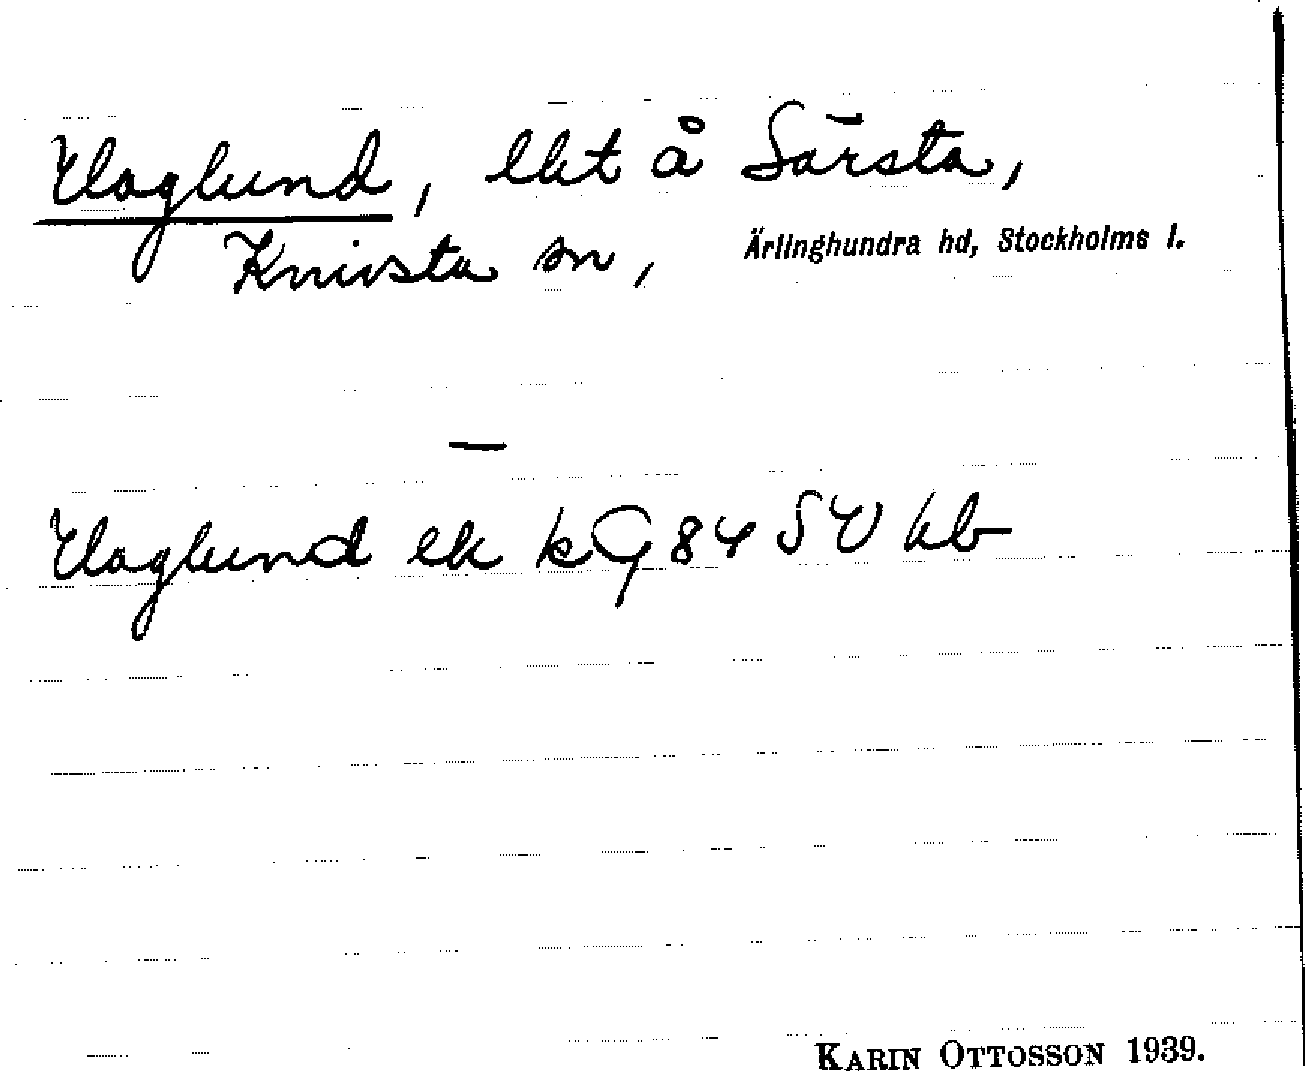 Haglund, lht å Särsta,
Knivsta sn, Ärlinghundra hd, Stockholms l.
—
Haglund ek kG 84 SV hb
KARIN OTTOSSON 1939.